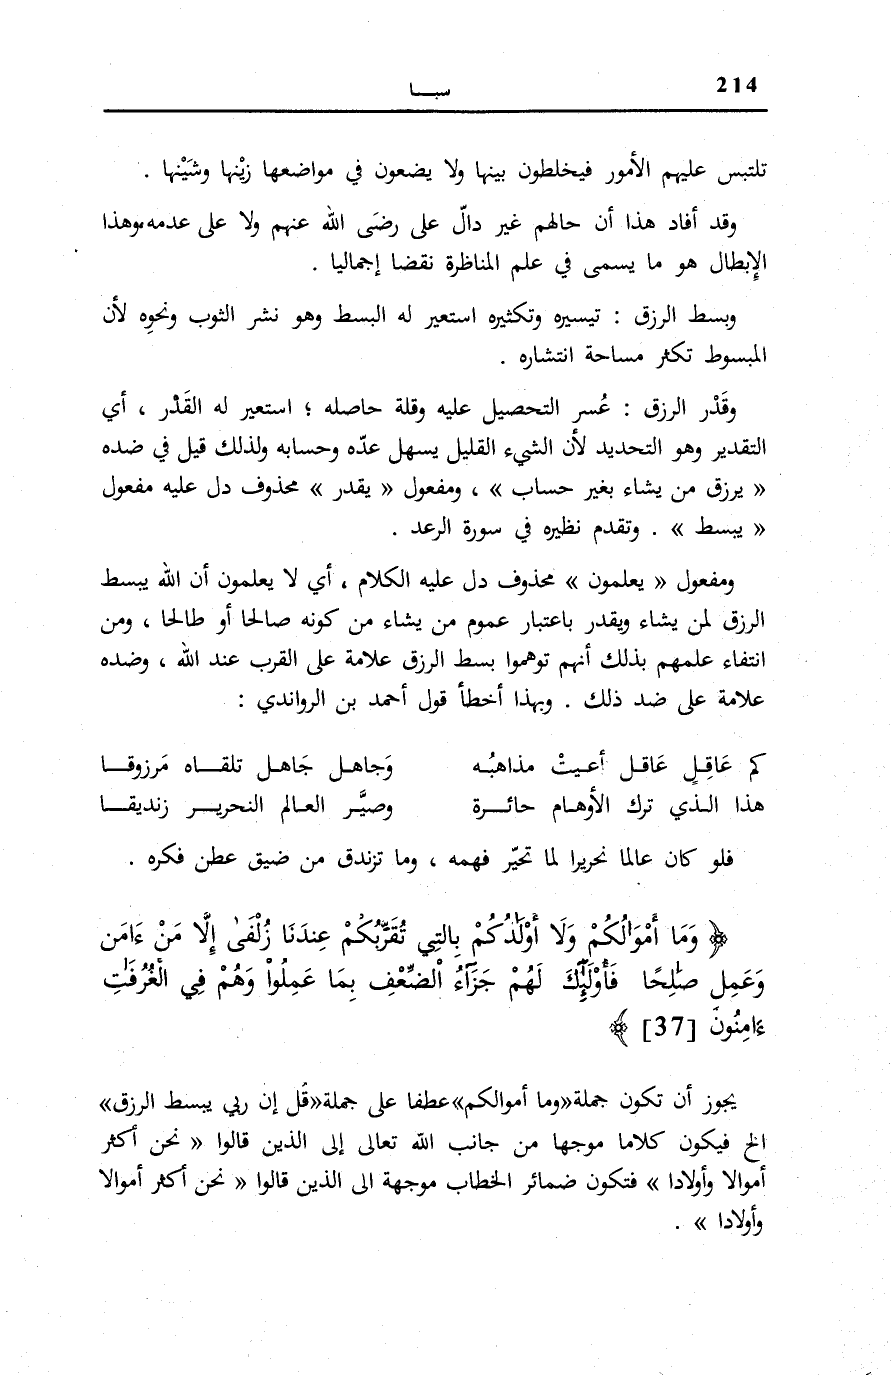 214
سبـــا
تلتبس عليهم الأمور فيخلطون بينها ولا يضعون في مواضعها زيْنها وشَيْنها .
وقد أفاد هذا أن حالهم غير دالّ على رضَى الله عنهم ولا على عدمه،وهذا
الإبطال هو ما يسمى في علم المناظرة نقضا إجماليا .
وبسط الرزق : تيسيره وتكثيره استعير له البسط وهو نشر الثوب ونحوِه لأن
المبسوط تكثر مساحة انتشاره .
وقَدْر الرزق : عُسر التحصيل عليه وقلة حاصله ؛ استعير له القَدْر ، أي
التقدير وهو التحديد لأن الشيء القليل يسهل عدّه وحسابه ولذلك قيل في ضده
« يرزق من يشاء بغير حساب » ، ومفعول « يقدر » محذوف دل عليه مفعول
« يبسط » . وتقدم نظيره في سورة الرعد .
ومفعول « يعلمون » محذوف دل عليه الكلام ، أي لا يعلمون أن الله يبسط
الرزق لمن يشاء ويقدر باعتبار عموم من يشاء من كونه صالحا أو طالحا ، ومن
انتفاء علمهم بذلك أنهم توهموا بسط الرزق علامة على القرب عند الله ، وضده
علامة على ضد ذلك . وبهذا أخطأ قول أحمد بن الرواندي :
كم عَاقِلٍ عَاقل أعيتْ مذاهبُه وَجاهل جَاهل تلقاه مَرزوقا
هذا الذي ترك الأوهام حائرة وصيَّر العالم النحرير زنديقا
فلو كان عالما نحريرا لما تحيّر فهمه ، وما تزندق من ضيق عطن فكره .
﴿ وَمَا أَمْوَٰلُكُمْ وَلَا أَوْلَٰدُكُمْ بِالتِي تُقَرِّبُكُمْ عِندَنَا زُلْفَىٰ إِلَّا مَنْ ءَامَن
وَعَمِل صَٰلِحًا فَأُوْلَٰٓئِكَ لَهُمْ جَزَآءُ الْضِّعْفِ بِمَا عَمِلُواْ وَهُمْ فِي الْغُرُفَٰتِ
ءَامِنُونَ [37] ﴾
يجوز أن تكون جملة«وما أموالكم»عطفا على جملة«قُل إن ربي يبسط الرزق»
الخ فيكون كلاما موجها من جانب الله تعالى إلى الذين قالوا « نحن أكثر
أموالا وأولادا » فتكون ضمائر الخطاب موجهة الى الذين قالوا « نحن أكثر أموالا
وأولادا » .